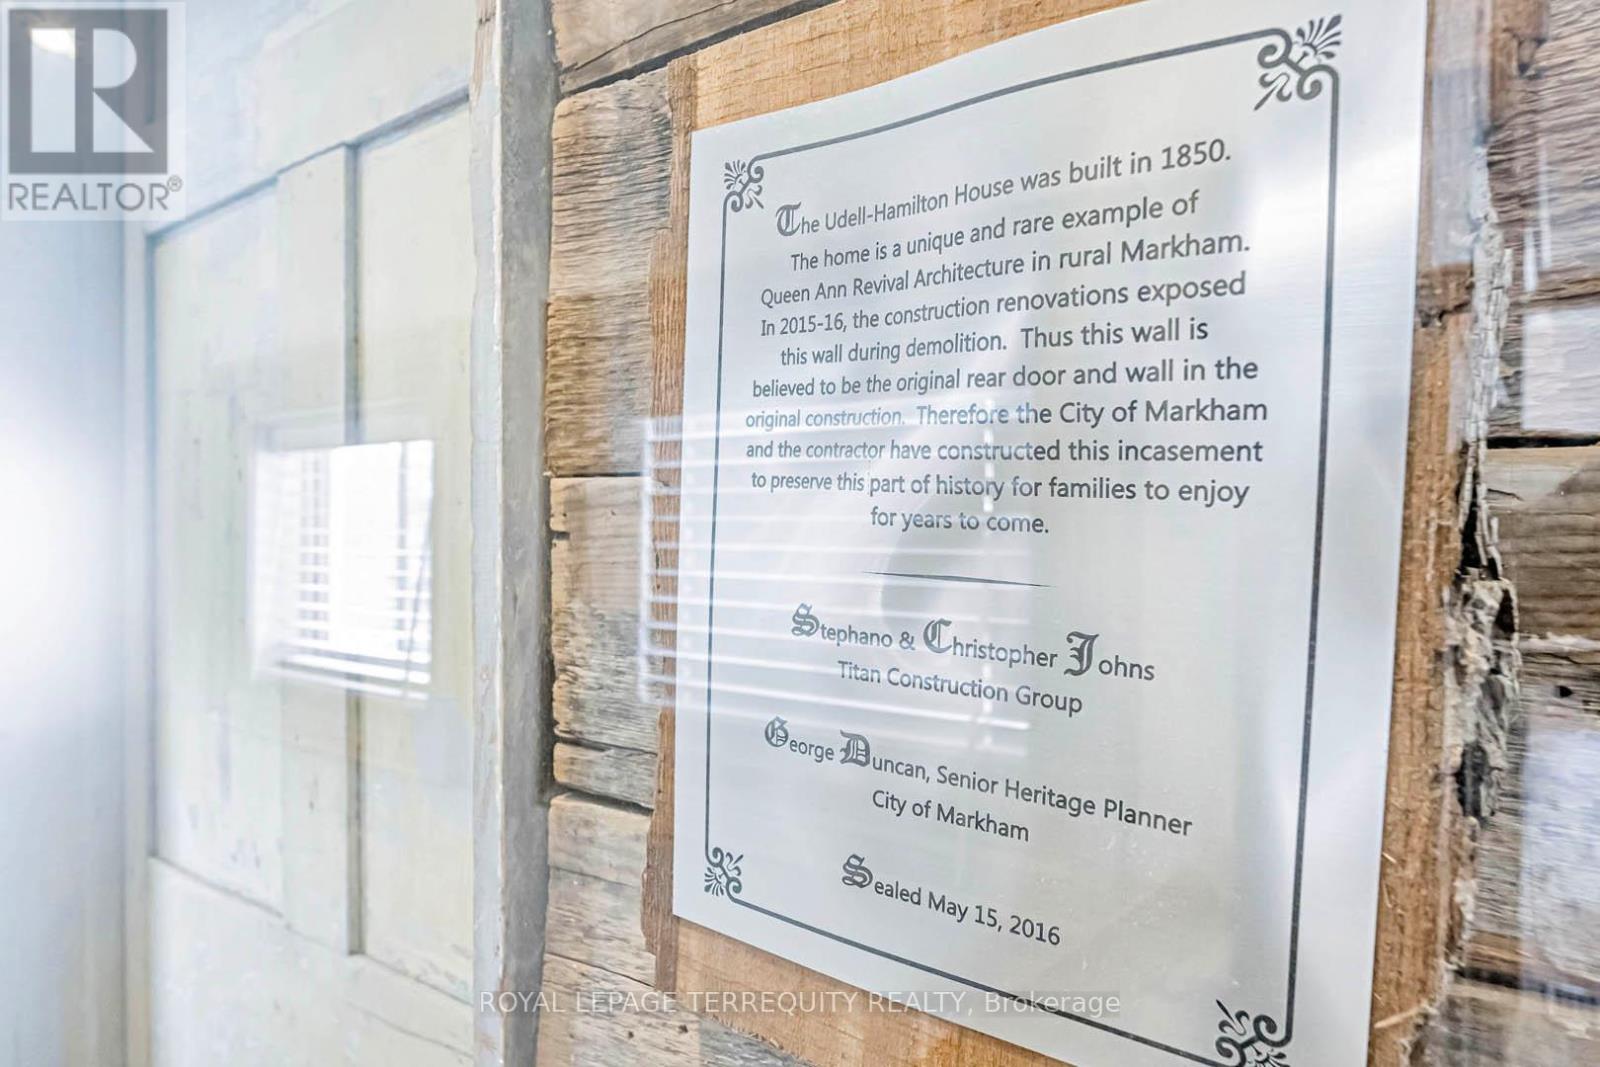 REALTOR®
The Udell-Hamilton House was built in 1850.
The home is a unique and rare example of
Queen Ann Revival Architecture in rural Markham.
In 2015-16, the construction renovations exposed
this wall during demolition. Thus this wall is
believed to be the original rear door and wall in the
original construction. Therefore the City of Markham
and the contractor have constructed this incasement
to preserve this part of history for families to enjoy
for years to come.
Stephano & Christopher Johns
Titan Construction Group
George Duncan, Senior Heritage Planner
City of Markham
Sealed May 15, 2016
ROYAL LEPAGE TERREQUITY REALTY, Brokerage